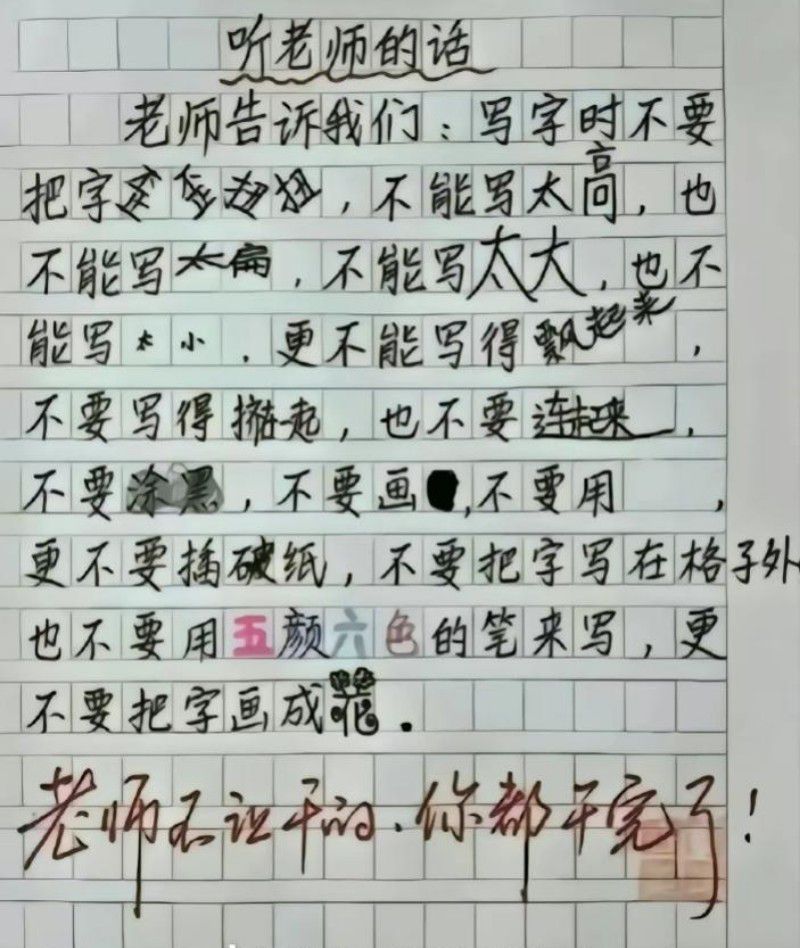 听老师的话
老师告诉我们：写字时不要
把字歪歪扭扭，不能写太高，也
不能写太扁，不能写太大，也不
能写太小．更不能写得飘起来，
不要写得挤一起，也不要连起来，
不要涂黑，不要画，不要用，
更不要插破纸，不要把字写在格子外
也不要用五颜六色的笔来写，更
不要把字画成花．
老师不让干的．你都干完了！